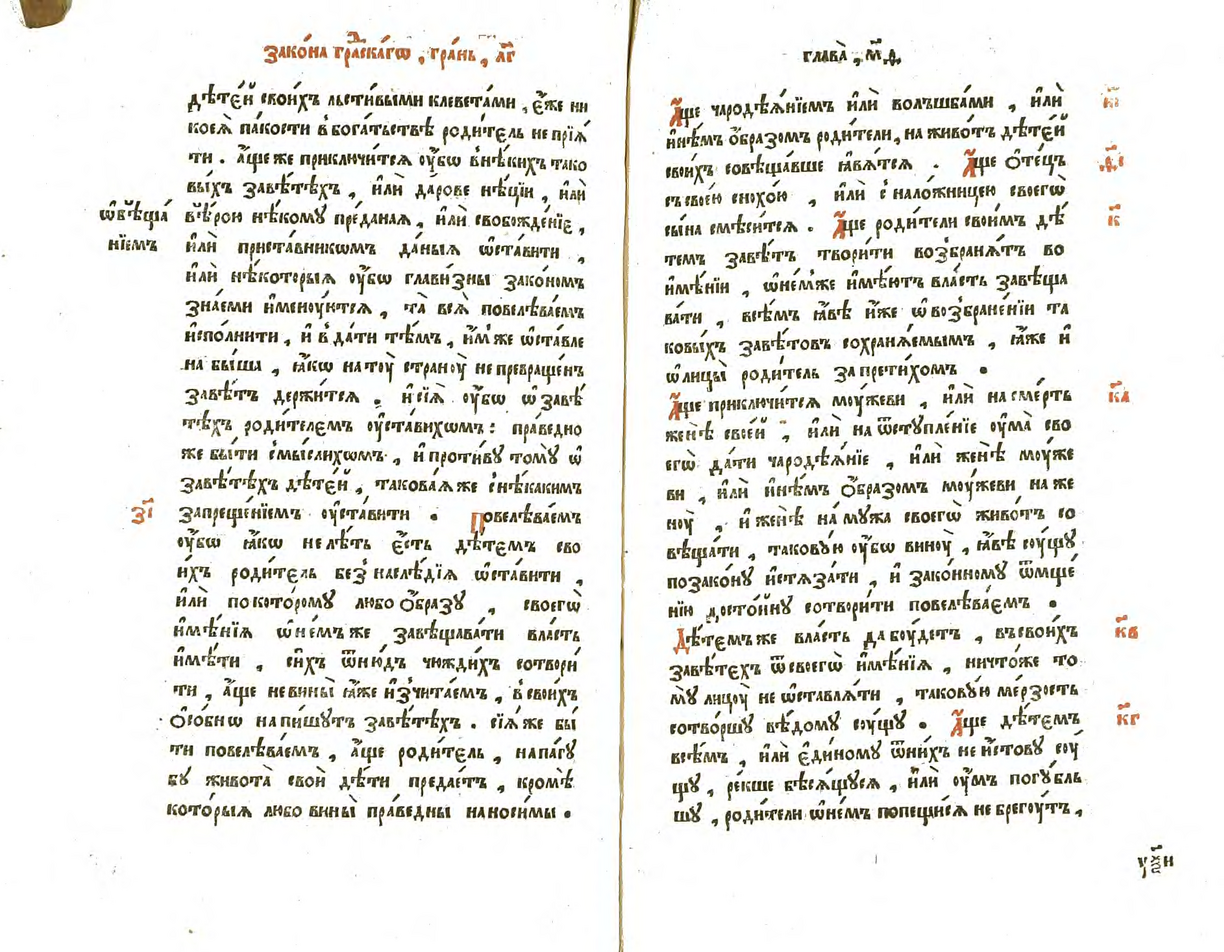 зако́на гра́дскагѡ , гра́нь , л҃г
дѣте́й свои́хъ льсти́выми клевета́ми , є҆́же ни
коеѧ̀ па́кости в̾бога́тьствѣ роди́тель не прїѧ́
ти . а҆́ще же приключи́тсѧ оу҆́бѡ в̾нѣ́кихъ тако
вы́хъ завѣ́тѣхъ , и҆лѝ да́рове нѣ́цїи , и҆лѝ
ѡ҆бѣща́
в̾ѣ́рою нѣ́кому пре́даная , и҆лѝ свобожде́нїе ,
нїемъ
и҆лѝ приста́вникѡмъ да́ныѧ ѡ҆ста́вити ,
и҆лѝ нѣ́которыѧ оу҆́бѡ глави́зны зако́номъ
зна́еми и҆меноу́ютсѧ , та̀ всѧ̀ повелѣва́емъ
и҆спо́лнити , и҆ в̾да́ти тѣ́мъ , и҆̀мже ѡ҆ста́вле
на бы́ша , ꙗ҆́кѡ на тоу̀ страноу̀ не превраще́нъ
завѣ́тъ держи́тсѧ . и҆ сїѧ̀ оу҆́бѡ ѡ҆ завѣ́
тѣхъ роди́телемъ оу҆ста́вихѡмъ : пра́ведно
же бы́ти смы́слихѡмъ , и҆ проти́вꙋ томꙋ̀ ѡ҆
завѣ́тѣхъ дѣте́й , такова́ѧже с̾нѣ́какимъ
з҃і
запреще́нїемъ оу҆ста́вити . Повелѣва́емъ
оу҆́бѡ ꙗ҆́кѡ не лѣ́ть є҆́сть дѣ́темъ сво
и́хъ роди́тель без̾наслѣ́дїѧ ѡ҆ста́вити ,
и҆лѝ по кото́рому любо ѻ҆́бразꙋ , своегѡ̀
и҆мѣ́нїѧ ѡ҆ не́мъ же завѣщава́ти вла́сть
и҆мѣ́ти , си́хъ ѿню́дъ чюжди́хъ сотвори́
ти , а҆́ще не вины̀ ꙗ҆́же и҆зчита́емъ , в̾свои́хъ
ѻ҆со́бнѡ напи́шутъ завѣ́тѣхъ . сїѧ́ же бы́
ти повелѣва́емъ , а҆́ще роди́тель , на па́гꙋ
бꙋ живота̀ своѝ дѣ́ти преда́етъ , кромѣ̀
кото́рыѧ любо вины̀ пра́ведны наноси́мы .
глава̀ , м҃д
А҆́ще чародѣѧ́нїемъ и҆лѝ волъшба́ми , и҆лѝ
и҆нѣ́мъ ѻ҆́бразомъ роди́тели , на живо́тъ дѣте́й
свои́хъ совѣща́вше ꙗ҆вѧ́тсѧ . А҆́ще ѻ҆те́цъ
съ свое́ю снохо́ю , и҆лѝ с̾нало́жницею своегѡ̀
сы́на смѣси́тсѧ . А҆́ще роди́тели свои́мъ дѣ́
к҃
темъ завѣ́тъ твори́ти возбранѧ́тъ во
и҆мѣ́нїи , ѡ҆ не́мже и҆мѣ́ютъ вла́сть завѣща
ва́ти , всѣ́мъ ꙗ҆́вѣ и҆́же ѡ҆ возбране́нїи та
ковы́хъ завѣ́товъ сохранѧ́емымъ , ꙗ҆́же и҆
ѡ҆ лицы̀ роди́тель запрети́хомъ .
А҆́ще приключи́тсѧ моу́жеви , и҆лѝ на сме́рть
к҃а
женѣ̀ свое́й , и҆лѝ на ѿступле́нїе оу҆ма̀ сво
егѡ̀ да́ти чародѣѧ́нїе , и҆лѝ женѣ̀ моу́же
ви , и҆лѝ и҆нѣ́мъ ѻ҆́бразомъ моу́жеви на же
ноу̀ , и҆ женѣ̀ на мꙋ́жа своегѡ̀ живо́тъ со
вѣща́ти , такову́ю оу҆́бѡ виноу̀ , ꙗ҆́вѣ соу́щꙋ
по зако́нꙋ и҆стѧза́ти , и҆ зако́нному ѿмще́
нїю досто́йнꙋ сотвори́ти повелѣва́емъ .
Дѣ́темъже вла́сть да боу́детъ , въ свои́хъ
к҃в
завѣ́техъ ѿ своегѡ̀ и҆мѣ́нїѧ , ничто́же то
мꙋ̀ лицоу̀ не ѡ҆ставлѧ́ти , такову́ю ме́рзость
сотво́ршꙋ вѣ́дому соу́щꙋ . А҆́ще дѣ́темъ
к҃г
всѣ́мъ , и҆лѝ є҆ди́ному ѿ ни́хъ не и҆́стову соу́
щꙋ , ре́кше бѣсѧ́щꙋсѧ , и҆лѝ оу҆́мъ погꙋ́бль
шꙋ , роди́тели ѡ҆ не́мъ попещи́сѧ не брегоу́тъ ,